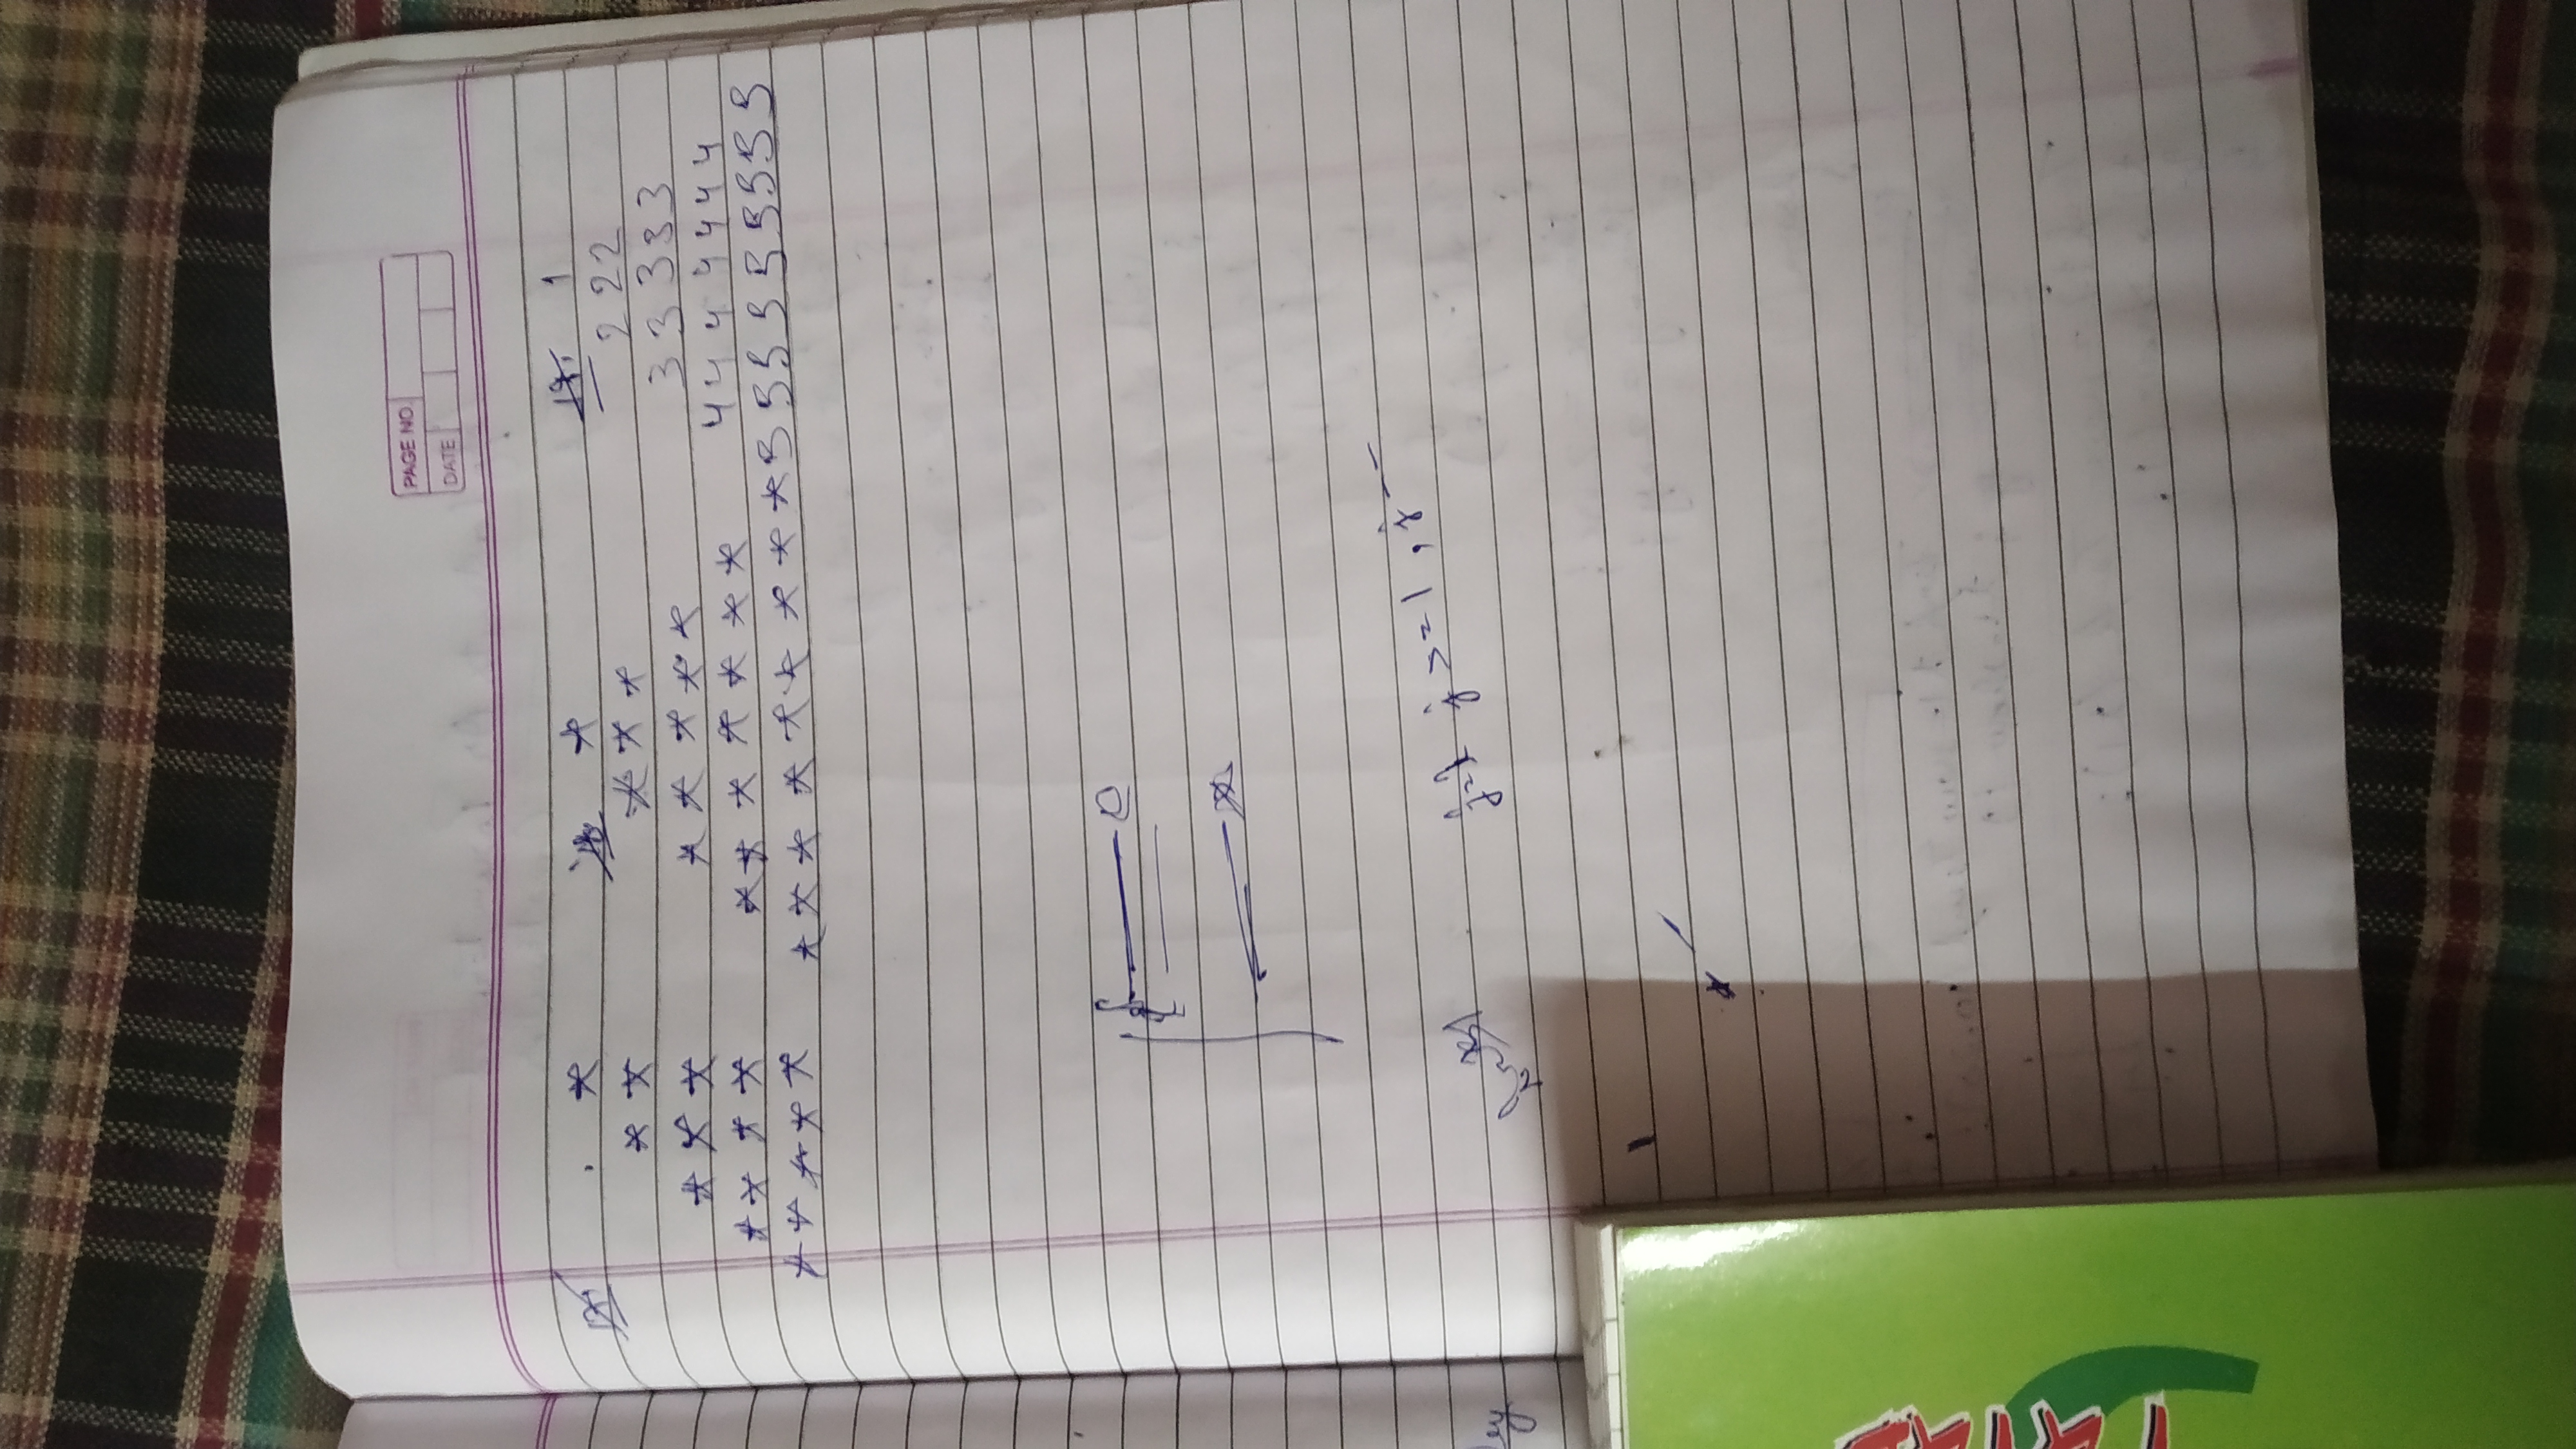 PAGE NO.
DATE
17. * 18. * 19. 1
* * * * * 2 2 2
* * * * * * * * 3 3 3 3 3
* * * * * * * * * * * 4 4 4 4 4 4 4
* * * * * * * * * * * * * * 5 5 5 5 5 5 5 5 5
j >= 1 , j--
ey